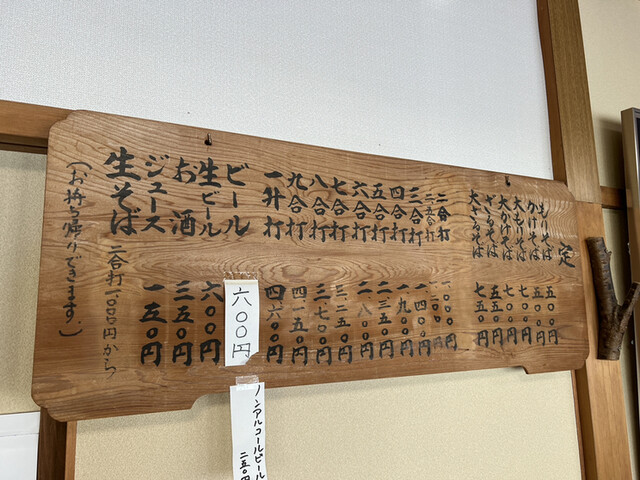 定
もりそば 五〇〇円
かけそば 五〇〇円
大もりそば 七〇〇円
大かけそば 七〇〇円
ざるそば 五五〇円
大ざるそば 七五〇円
二合打 一.〇〇〇円
二.五合打 一.二〇〇円
三合打 一.四〇〇円
四合打 一.九〇〇円
五合打 二.三五〇円
六合打 二.八〇〇円
七合打 三.二五〇円
八合打 三.七〇〇円
九合打 四.一五〇円
一升打 四.六〇〇円
ビール 六〇〇円
生ビール 六〇〇円
お酒 三五〇円
ジュース 一五〇円
生そば 二合打一〇〇〇円から
(お持ち帰りできます。)
ノンアルコールビール 二五〇円